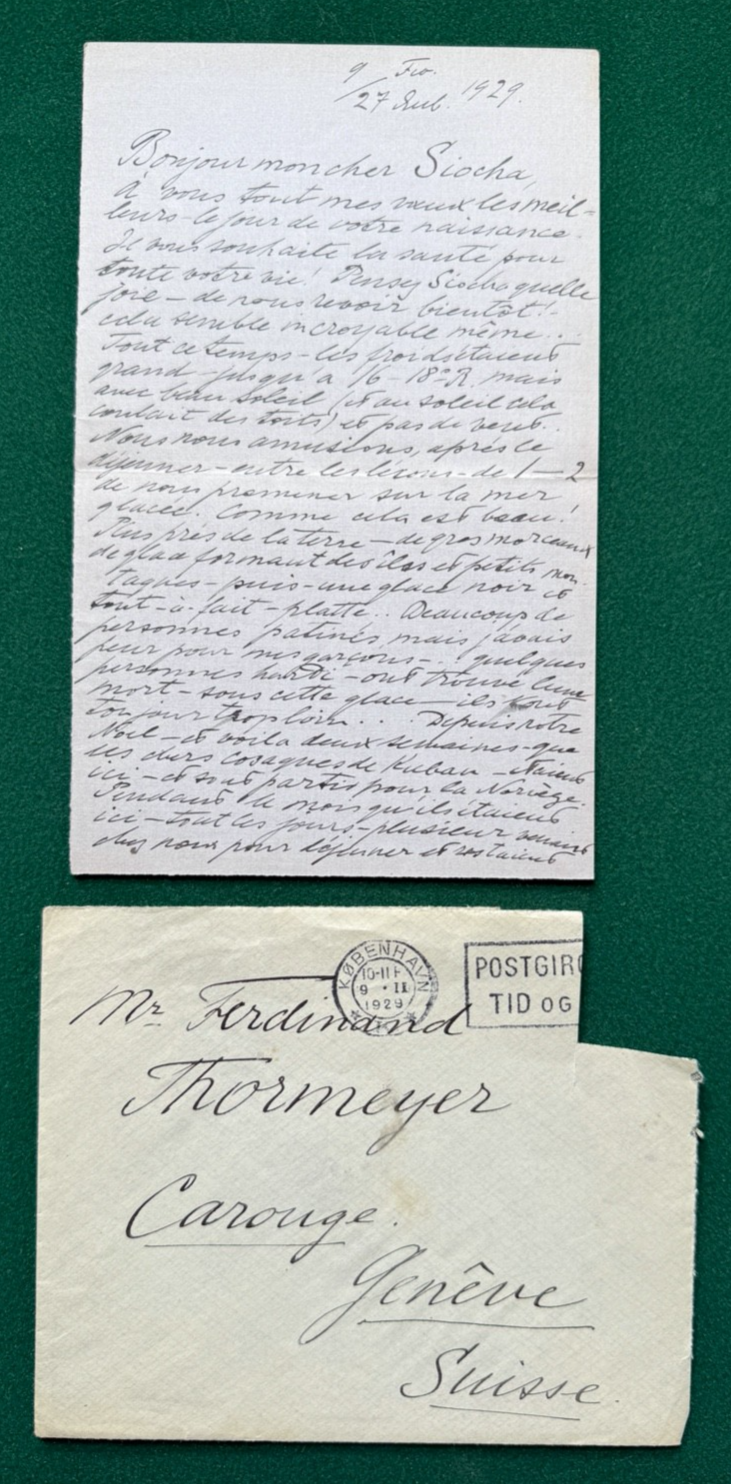 9 Fév.
/27 Янв. 1929.
Bonjour mon cher Siocha,
à vous tout mes vœux les meil-
leurs le jour de votre naissance.
Je vous souhaite la santé pour
toute votre vie! Pensez Siocha quelle
joie – de nous revoir bientôt!
cela semble incroyable même...
Tout ce temps – les froids étaient
grand – jusqu'à 16 – 18° R. mais
avec beau soleil (et au soleil cela
coulait des toits) et pas de vent.
Nous nous amusions, après le
déjeuner – entre les leçons – de 1 – 2
de nous promener sur la mer
glacée. Comme cela est beau!
Plus près de la terre – de gros morceaux
de glace formant des îles et petits mon
tagnes – puis – une glace noir et
tout-à-fait – platte.. Beaucoup de
personnes patinés mais j'avais
peur pour mes garçons – .. quelques
personnes hardi – ont trouvé leur
mort – sous cette glace – ils
toujour trop loin... Depuis notre
Noël – et voila deux semaines – que
les chers cosaques de Kuban – étaient
ici – et sont partis pour la Norvège.
Pendant le mois qu'ils étaient
ici – tout les jours – plusieur venaient
chez nous pour déjeuner et restaient
KØBENHAVN
10-11 F
9 · II
1929
POSTGIRO
TID OG
Mr Ferdinand
Thormeyer
Carouge.
Genêve
Suisse.